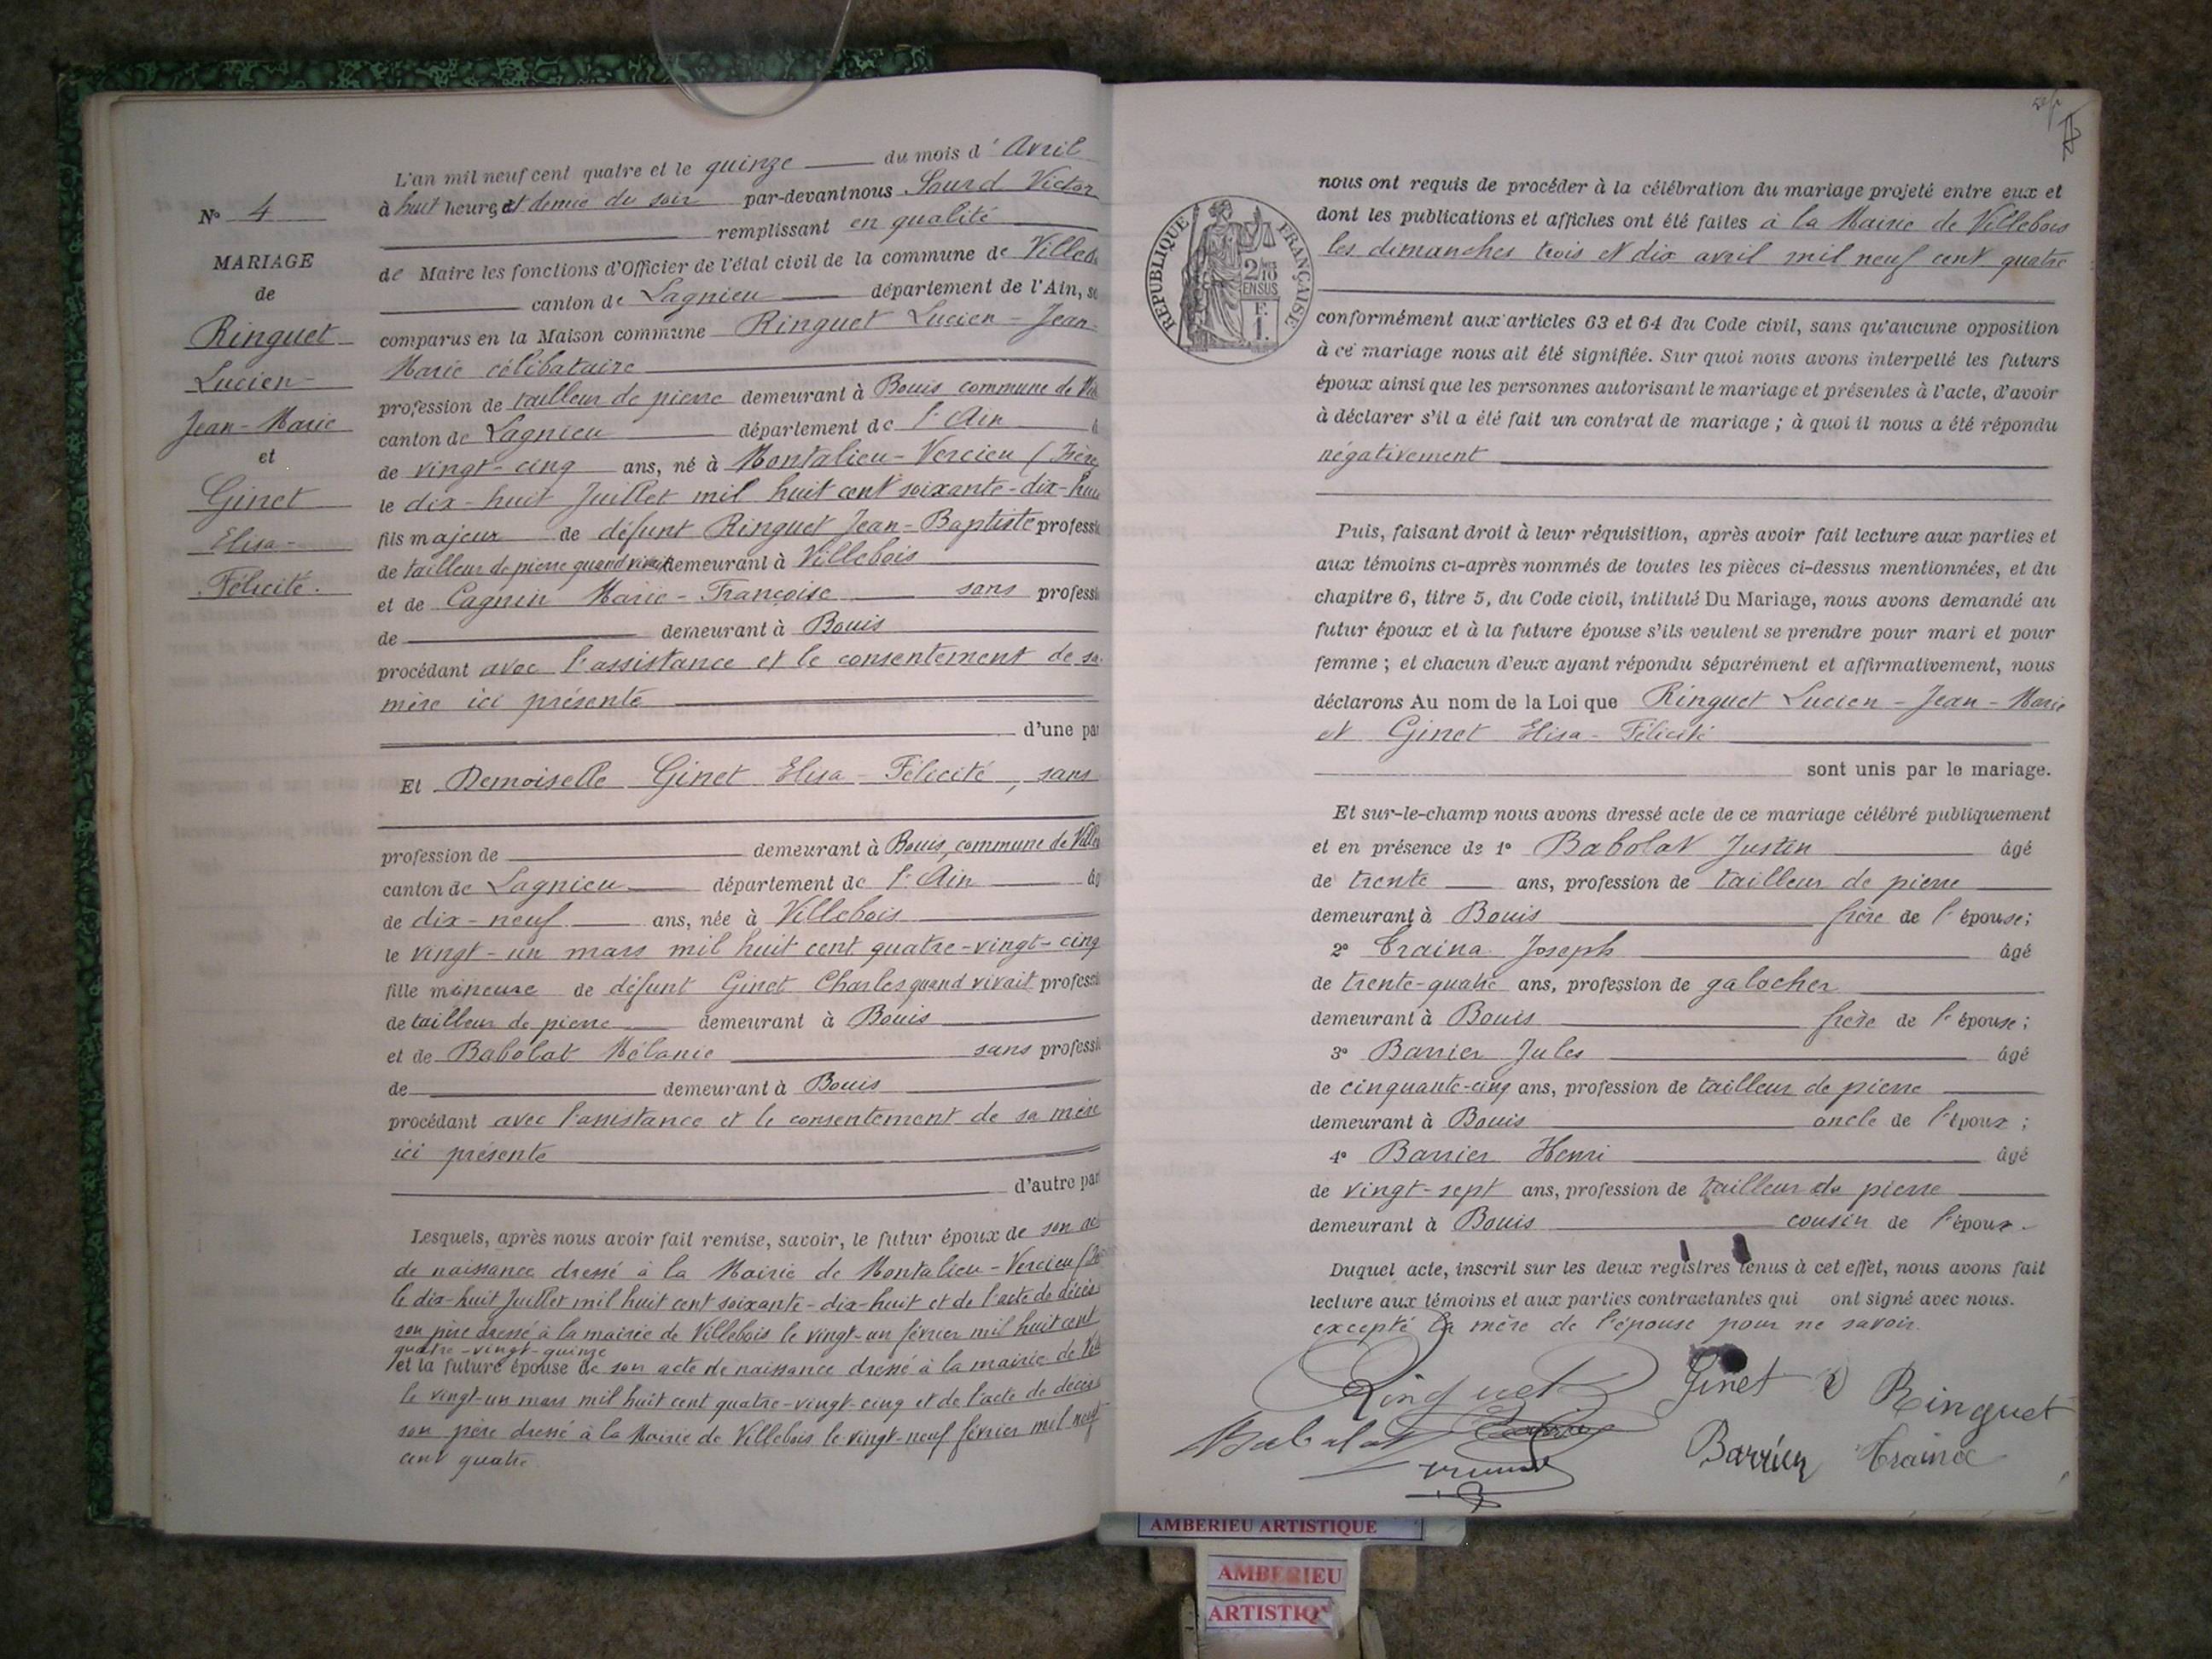 L'an mil neuf cent quatre et le quinze du mois d'Avril
à huit heures et demie du soir par-devant nous Sourd Victor
remplissant en qualité
de Maire les fonctions d'Officier de l'état civil de la commune de Villeb
canton de Lagnieu département de l'Ain, so
comparus en la Maison commune Ringuet Lucien - Jean-
Marie célibataire
profession de tailleur de pierre demeurant à Bouis commune de Vil
canton de Lagnieu département de l'Ain â
de vingt-cinq ans, né à Montalieu-Vercieu (Isère
le dix-huit Juillet mil huit cent soixante-dix-hui
fils majeur de défunt Ringuet Jean-Baptiste professi
de tailleur de pierre quand vivait demeurant à Villebois
et de Cagnin Marie-Françoise sans professi
de demeurant à Bouis
procédant avec l'assistance et le consentement de sa
mère ici présente
d'une par
Et Demoiselle Ginet Elisa-Félicité, sans
profession de demeurant à Bouis, commune de Villeb
canton de Lagnieu département de l'Ain âg
de dix-neuf ans, née à Villebois
le vingt-un mars mil huit cent quatre-vingt-cinq
fille mineure de défunt Ginet Charles quand vivait professi
de tailleur de pierre demeurant à Bouis
et de Babolat Mélanie sans professi
de demeurant à Bouis
procédant avec l'assistance et le consentement de sa mère
ici présente
d'autre par
Lesquels, après nous avoir fait remise, savoir, le futur époux de son ac
de naissance dressé à la Mairie de Montalieu-Vercieu (Is
le dix-huit Juillet mil huit cent soixante-dix-huit et de l'acte de décès
son père dressé à la mairie de Villebois le vingt-un février mil huit cent
quatre-vingt-quinze
et la future épouse de son acte de naissance dressé à la mairie de Vil
le vingt-un mars mil huit cent quatre-vingt-cinq et de l'acte de décès
son père dressé à la Mairie de Villebois le vingt-neuf février mil neuf
cent quatre
N° 4
MARIAGE
de
Ringuet
Lucien-
Jean-Marie
et
Ginet
Elisa-
Félicité.
nous ont requis de procéder à la célébration du mariage projeté entre eux et
dont les publications et affiches ont été faites à la Mairie de Villebois
les dimanches trois et dix avril mil neuf cent quatre
conformément aux articles 63 et 64 du Code civil, sans qu'aucune opposition
à ce mariage nous ait été signifiée. Sur quoi nous avons interpellé les futurs
époux ainsi que les personnes autorisant le mariage et présentes à l'acte, d'avoir
à déclarer s'il a été fait un contrat de mariage ; à quoi il nous a été répondu
négativement
Puis, faisant droit à leur réquisition, après avoir fait lecture aux parties et
aux témoins ci-après nommés de toutes les pièces ci-dessus mentionnées, et du
chapitre 6, titre 5, du Code civil, intitulé Du Mariage, nous avons demandé au
futur époux et à la future épouse s'ils veulent se prendre pour mari et pour
femme ; et chacun d'eux ayant répondu séparément et affirmativement, nous
déclarons Au nom de la Loi que Ringuet Lucien - Jean - Marie
et Ginet Elisa-Félicité
sont unis par le mariage.
Et sur-le-champ nous avons dressé acte de ce mariage célébré publiquement
et en présence de 1° Babolat Justin âgé
de trente ans, profession de tailleur de pierre
demeurant à Bouis frère de l'épouse;
2° Traina Joseph âgé
de trente-quatre ans, profession de galocher
demeurant à Bouis frère de l'épouse ;
3° Barrier Jules âgé
de cinquante-cinq ans, profession de tailleur de pierre
demeurant à Bouis oncle de l'époux ;
4° Barrier Henri âgé
de vingt-sept ans, profession de tailleur de pierre
demeurant à Bouis cousin de l'époux.
Duquel acte, inscrit sur les deux registres tenus à cet effet, nous avons fait
lecture aux témoins et aux parties contractantes qui ont signé avec nous.
excepté la mère de l'épouse pour ne savoir.
Ringuet Ginet Ringuet
Babolat Barrier Traina
RÉPUBLIQUE FRANÇAISE
2/10
EN SUS
F.
1.
AMBERIEU ARTISTIQUE
AMBERIEU
ARTISTIQ